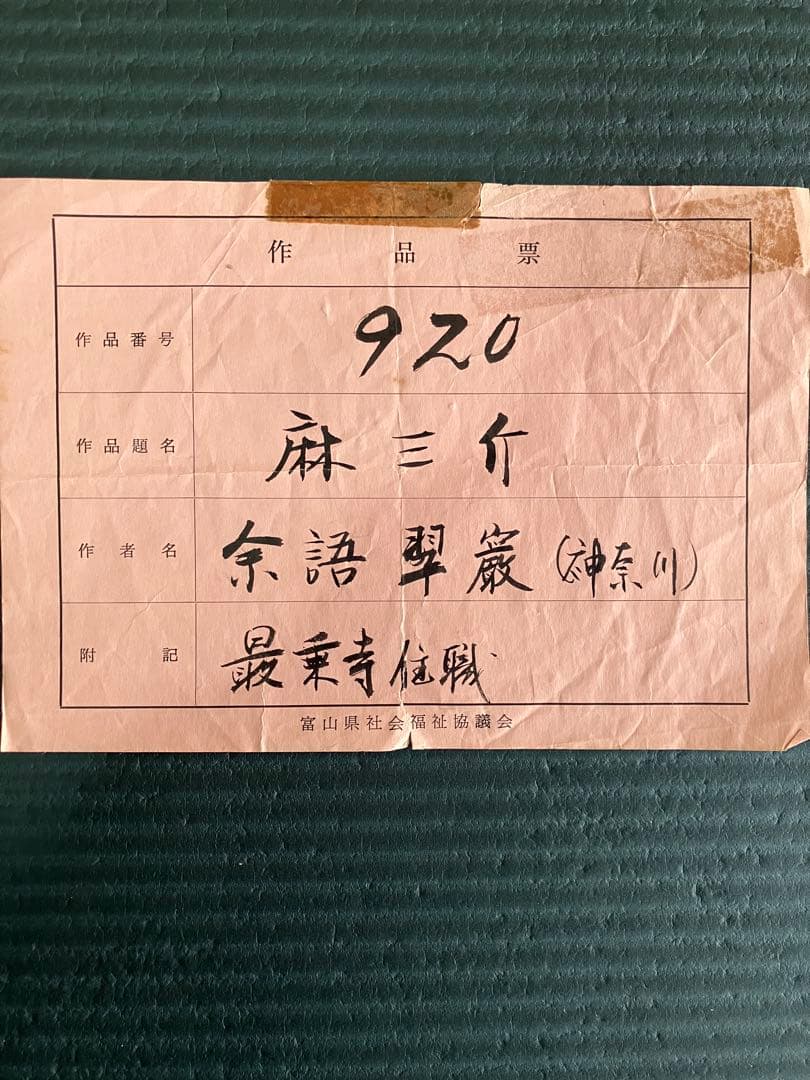 作品票
作品番号 920
作品題名 麻三斤
作者名 余語翠巖(神奈川)
附記 最乗寺住職
富山県社会福祉協議会